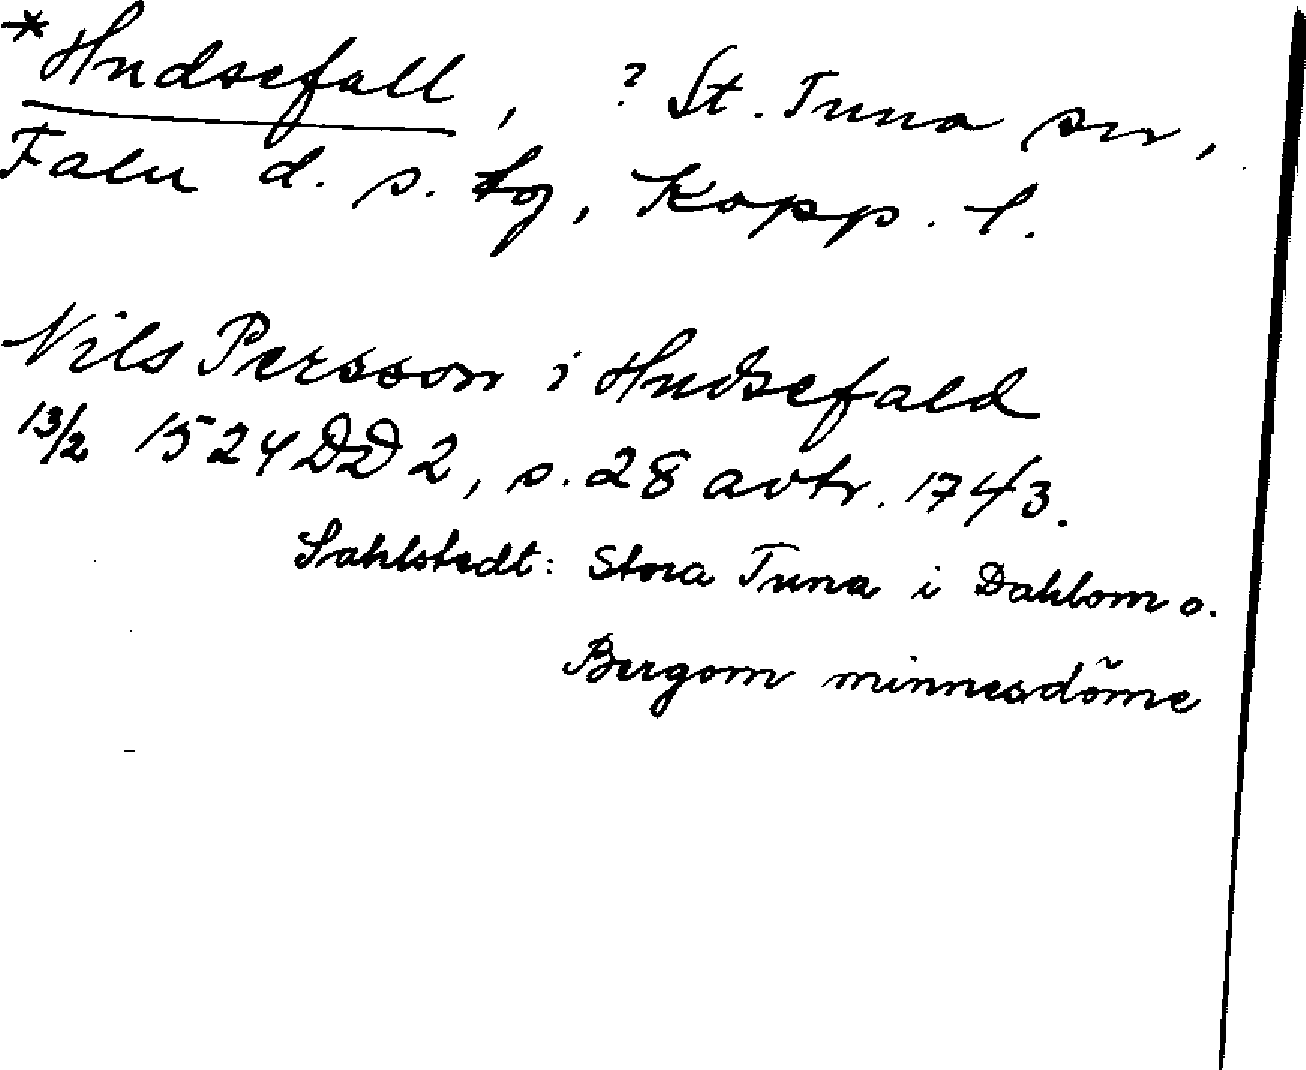 *Hudsefall, ? St. Tuna sn,
Falu d. s. tg, Kopp. l.
Nils Persson i Hudsefald
13/2 1524 DD 2, s. 28 avtr. 1743.
Sahlstedt: Stora Tuna i Dahlom o.
Bergom minnesdöme